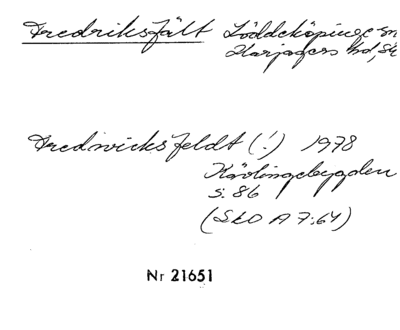 Fredriksfält Löddeköpinge sn
Harjagers hd, Sk
Fredricksfeldt (!) 1978
Kävlingebygden
s. 86
(SkO A 7:64)
Nr 21651